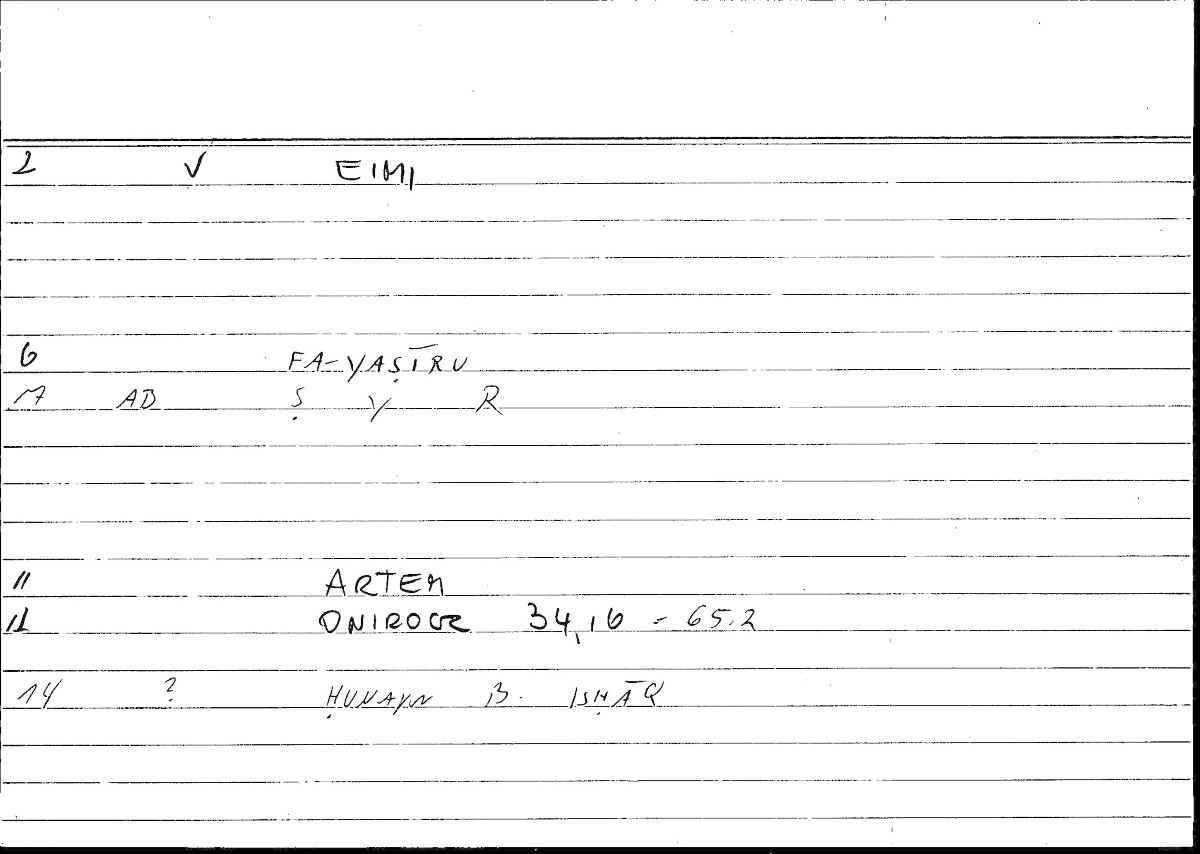 2 V EIMI
6 FA-YAṢĪRU
M AB Ṣ Y R
11 ARTEM
12 ONIROCR 34,16 = 65.2
14 ? ḤUNAYN B. ISḤĀQ